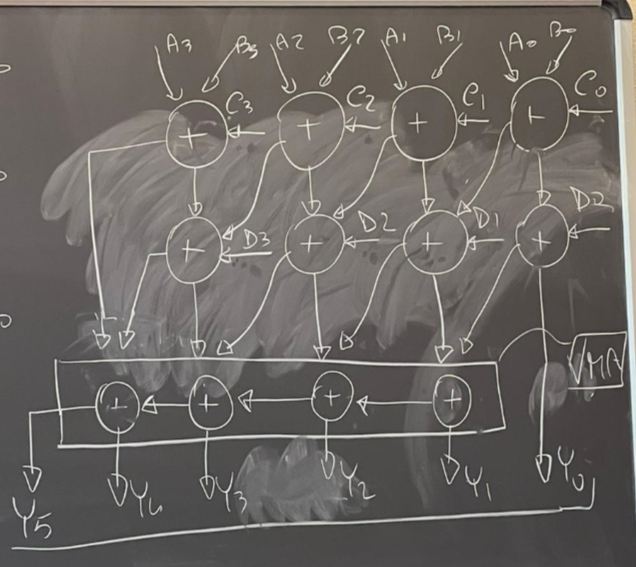 A3 B3 A2 B2 A1 B1 A0 B0
C3 C2 C1 C0
+ + + +
D3 D2 D1 D2
+ + + +
VMA
+ + + +
Y5 Y4 Y3 Y2 Y1 Y0